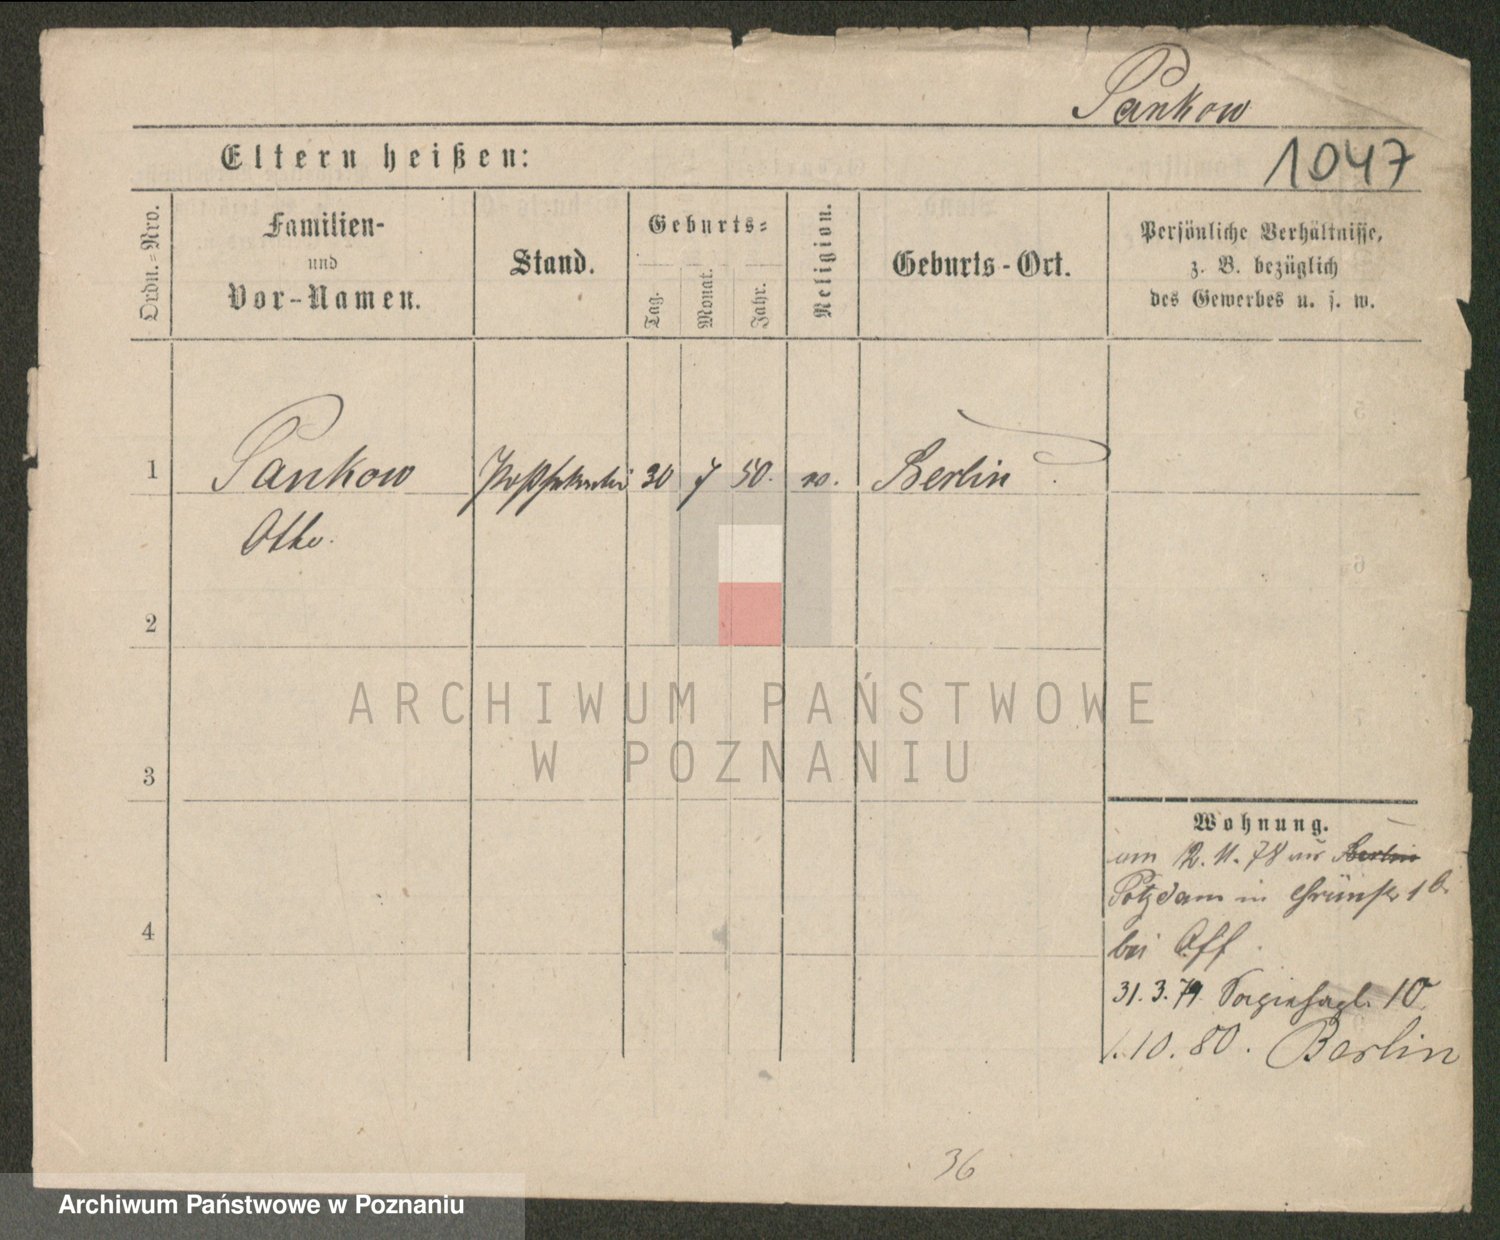 Pankow
Eltern heißen:
1047
Ordn.-Nro.
Familien-
und
Vor-Namen.
Stand.
Geburts-
Tag.
Monat.
Jahr.
Religion.
Geburts-Ort.
Persönliche Verhältnisse,
z. B. bezüglich
des Gewerbes u. s. w.
1
Pankow
30
7
50.
Berlin
Otto.
2
ARCHIWUM PAŃSTWOWE
W POZNANIU
3
Wohnung.
am 12. 11. 78 aus Berlin
Potzdam in Grünstr 1b.
4
bei Off.
31. 3. 79 10
1. 10. 80. Berlin
36
Archiwum Państwowe w Poznaniu